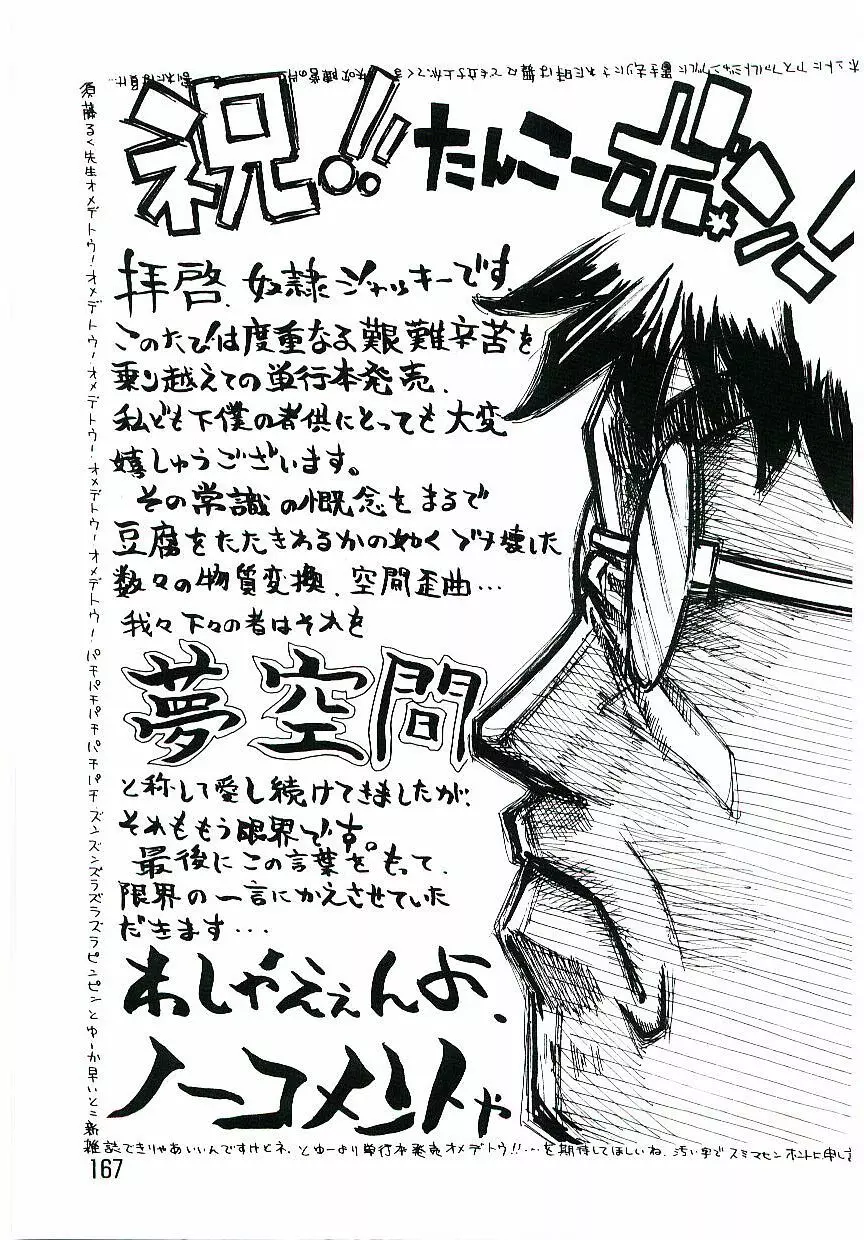 祝!!たんこーボン!
拝啓、奴隷ジャッキーです。
このたびは度重なる艱難辛苦を
乗り越えての単行本発売、
私ども下僕の者供にとっても大変
嬉しゅうございます。
その常識の慨念をまるで
豆腐をたたきわるかの如くブチ壊した
数々の物質変換、空間歪曲…
我々下々の者はそれを
夢空間
と称して愛し続けてきましたが、
それももう限界です。
最後にこの言葉をもって、
限界の一言にかえさせていた
だきます…
わしゃええんよ、
ノーコメントや
須藤るく先生オメデトウ!オメデトウ!オメデトウ!オメデトウ!オメデトウ!パチパチパチパチパチパチ
ズンズンズラズラズラピンピンとゆーか早いとこ新
雑誌できりゃあいいんですけどネ、とゆーより単行本発売オメデトウ!!…を期待してほしいね、汚い字でスミマセンホントに申し
ホントにアスファルトジャングルに置き去りにされた時は
167